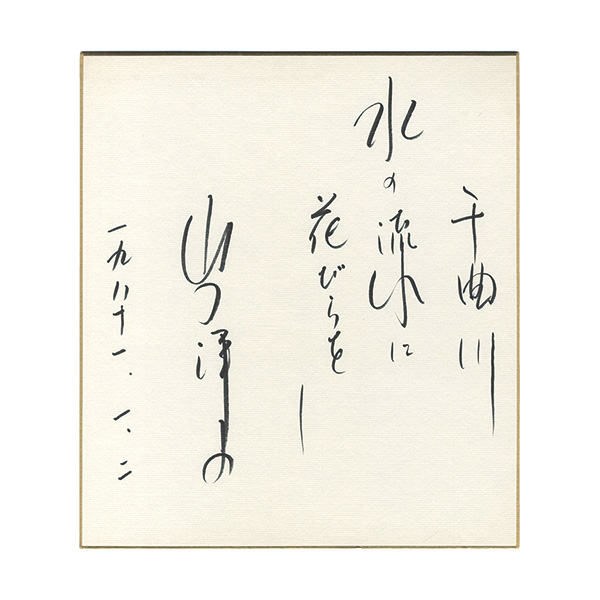 千曲川
水の流れに
花びらを―
山口洋子
一九八十一、一、二